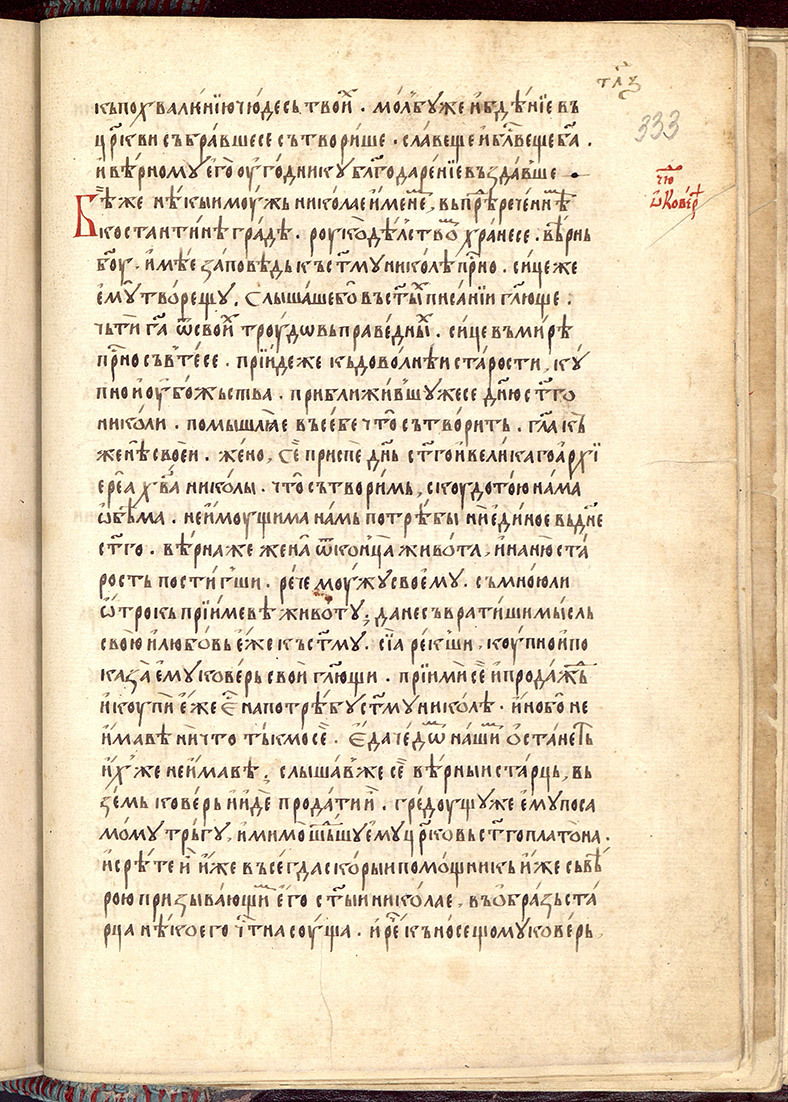 тл҃з
333
къпохвале́нїю чю́десь твои̑х . мо́лбꙋже и҆бдѣ́нїе въ
цр҃кви събра́вшесе сътвори́ше . сла́веще и҆бл҃веще ба҃ .
и҆вѣ́рномꙋ е҆го̀ ᲂу҆го́дникꙋ бл҃года́ренїе въздав́ше
чю҃
Бѣ́же нѣ́кыи моу́жь никола́е и҆менем , въпрѣ́реченнѣм
ѡ҆ ковір҃ѣ
костанти́нѣ гра́дѣ . роукодѣ́лством хра́несе . вѣ́рнь
бг҃оу . и҆мѣ́е за́повѣдь къст҃мꙋ нико́лѣ при́сно . си́цеже
е҆мꙋ̀ тво́рещꙋ . слы́шашебо въст҃ы́х писа́нїи гл҃юще .
чьтѝ га҃ ѿсвои́х троу́довь пра́ведных . си́це въми́рѣ
при́сно съв́тесе . прїи́деже къдово́лнѣи ста́рости , кꙋ́
пно и҆ᲂубо́жьства . приближи́вшꙋжесе дн҃ю ст҃го
нико́ли . помы́шлꙗе въсебе что̀ сътво́рить . гл҃а къ
же́нѣ свое́и . же́но , сѐ приспѐ дн҃ь ст҃го и҆вели́каго а҆рхї
ере́а хв҃а нико́лы . что̀ сътвори́мь , скоу́дотою на́ма
ѡ҆бѣ́ма . неи́моущима на́мь потрѣ́бы ни҆еди́ное въдн҃е
ст҃го . вѣ́рнаже жена̀ ѿконца̀ живо́та , и҆наню̀ ста́
рость пости́гши . речѐ моу́жꙋ своемꙋ . съмно́юли
ѿ́трокь прїи́ме вѣ̀ живо́тꙋ ; данесъврати́ши мы́сль
свою̀ и҆любо́вь е҆же къст҃мꙋ . сїа̀ ре́кши , коу́пно и҆по
каза̀ е҆мꙋ кове́рь сво́и гл҃ющи . прїимѝ сѐ и҆прода́ждь
и҆коупѝ е҆же е҆с҃ напотрѣ́бꙋ ст҃мꙋ нико́лѣ . и҆но́бо не
и҆мавѣ̀ ничто̀ тъ́кмо сѐ . е҆да́ чедѡм на́шим ѻ҆ста́неть
и҆́хже неи́мавѣ ; слы́шавже сѐ вѣ́рныи ста́рць , вь
зе́мь кове́рь и҆и́де прода́ти и҆̀ . гре́доущꙋже е҆мꙋ̀ поса
мо́мꙋ тръ́гꙋ , и҆ми́мошъдшꙋ е҆мꙋ̀ цр҃ковь ст҃го плато́на .
и҆срѣ́те и҆̀ и҆́же въсе́гда ско́рыи помо́щникь и҆́же сьвѣ̀
рою призыва́ющим е҆го̀ ст҃ыи никола́е , въо́бразь ста́
рца нѣ́коего чт҃на соу́ща . и҆ре҃ч къно́сещомꙋ кове́рь ,